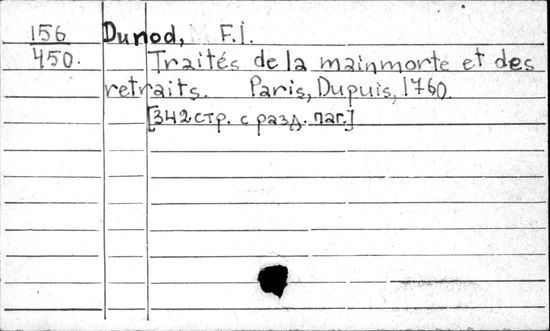 156 Dunod, F.I.
450. Traités de la mainmorte et des
retraits. Paris, Dupuis, 1760.
[342 стр. с разд. паг.]